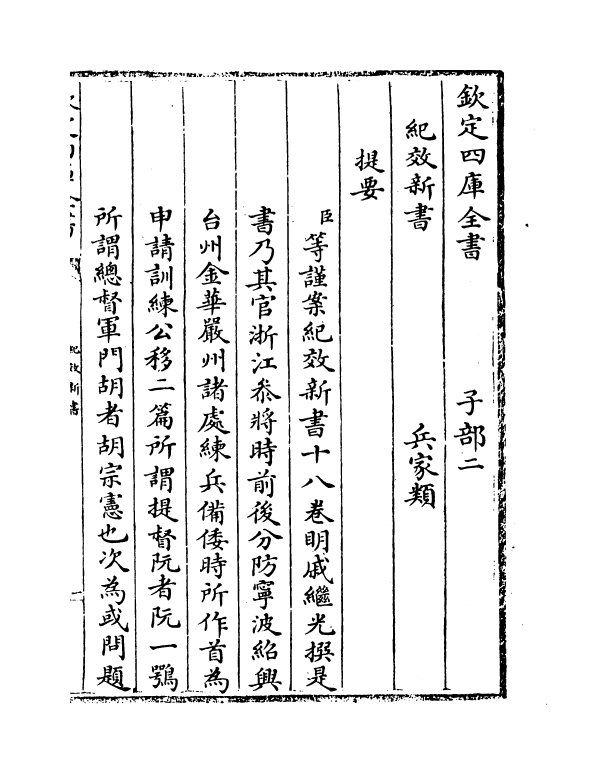 欽定四庫全書　子部二
紀效新書　兵家類
提要
臣等謹案紀效新書十八卷明戚繼光撰是
書乃其官浙江叅將時前後分防寧波紹興
台州金華嚴州諸處練兵備倭時所作首為
申請訓練公移二篇所謂提督阮者阮一鶚
所謂總督軍門胡者胡宗憲也次為或問題
紀效新書
一